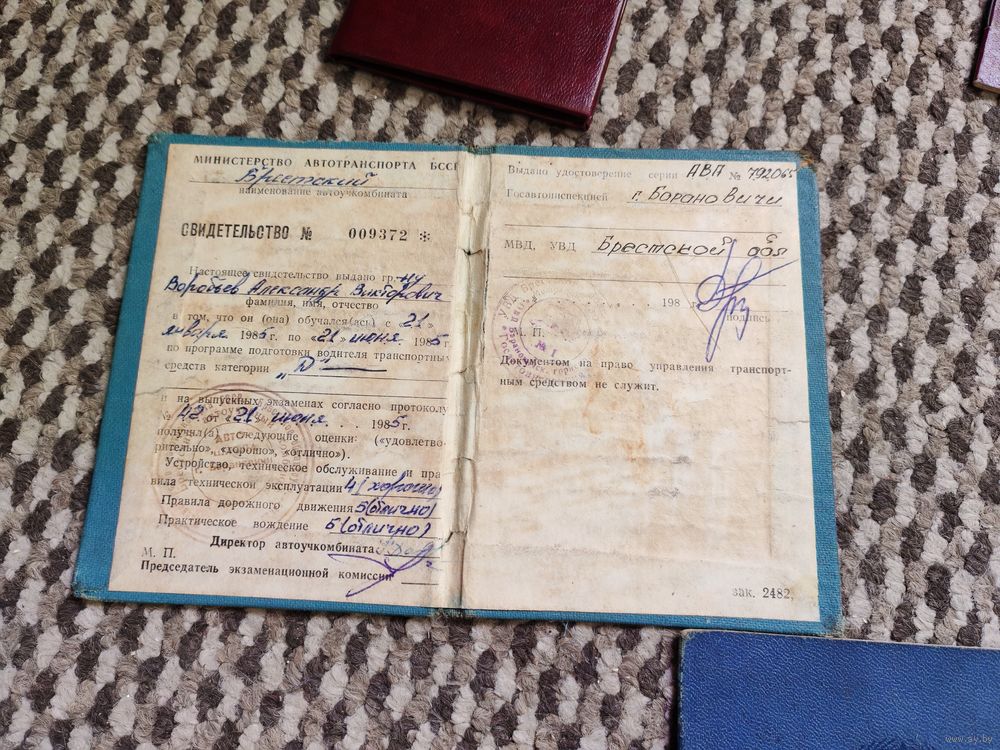 МИНИСТЕРСТВО АВТОТРАНСПОРТА БССР
Брестский
наименование автоучкомбината
СВИДЕТЕЛЬСТВО № 009372 ✻
Настоящее свидетельство выдано гр-ну
Воробьёв Александр Викторович
фамилия, имя, отчество
в том, что он (она) обучался(ась) с «21»
января 1985 г. по «21» июня 1985 г.
по программе подготовки водителя транспортных
средств категории
„D“
и на выпускных экзаменах согласно протоколу
№ 42 от «21» июня . . 1985 г.
получил(а) следующие оценки: («удовлетво-
рительно», «хорошо», «отлично»).
Устройство, техническое обслуживание и пра-
вила технической эксплуатации 4 (хорошо)
Правила дорожного движения 5 (отлично)
Практическое вождение 5 (отлично)
Директор автоучкомбината
М. П.
Председатель экзаменационной комиссии
Выдано удостоверение серии АВА № 792065
Госавтоинспекцией г. Барановичи
МВД, УВД Брестской обл
198 г.
подпись
М. П.
№ 1
Документом на право управления транспорт-
ным средством не служит.
зак. 2482.
www.ay.by